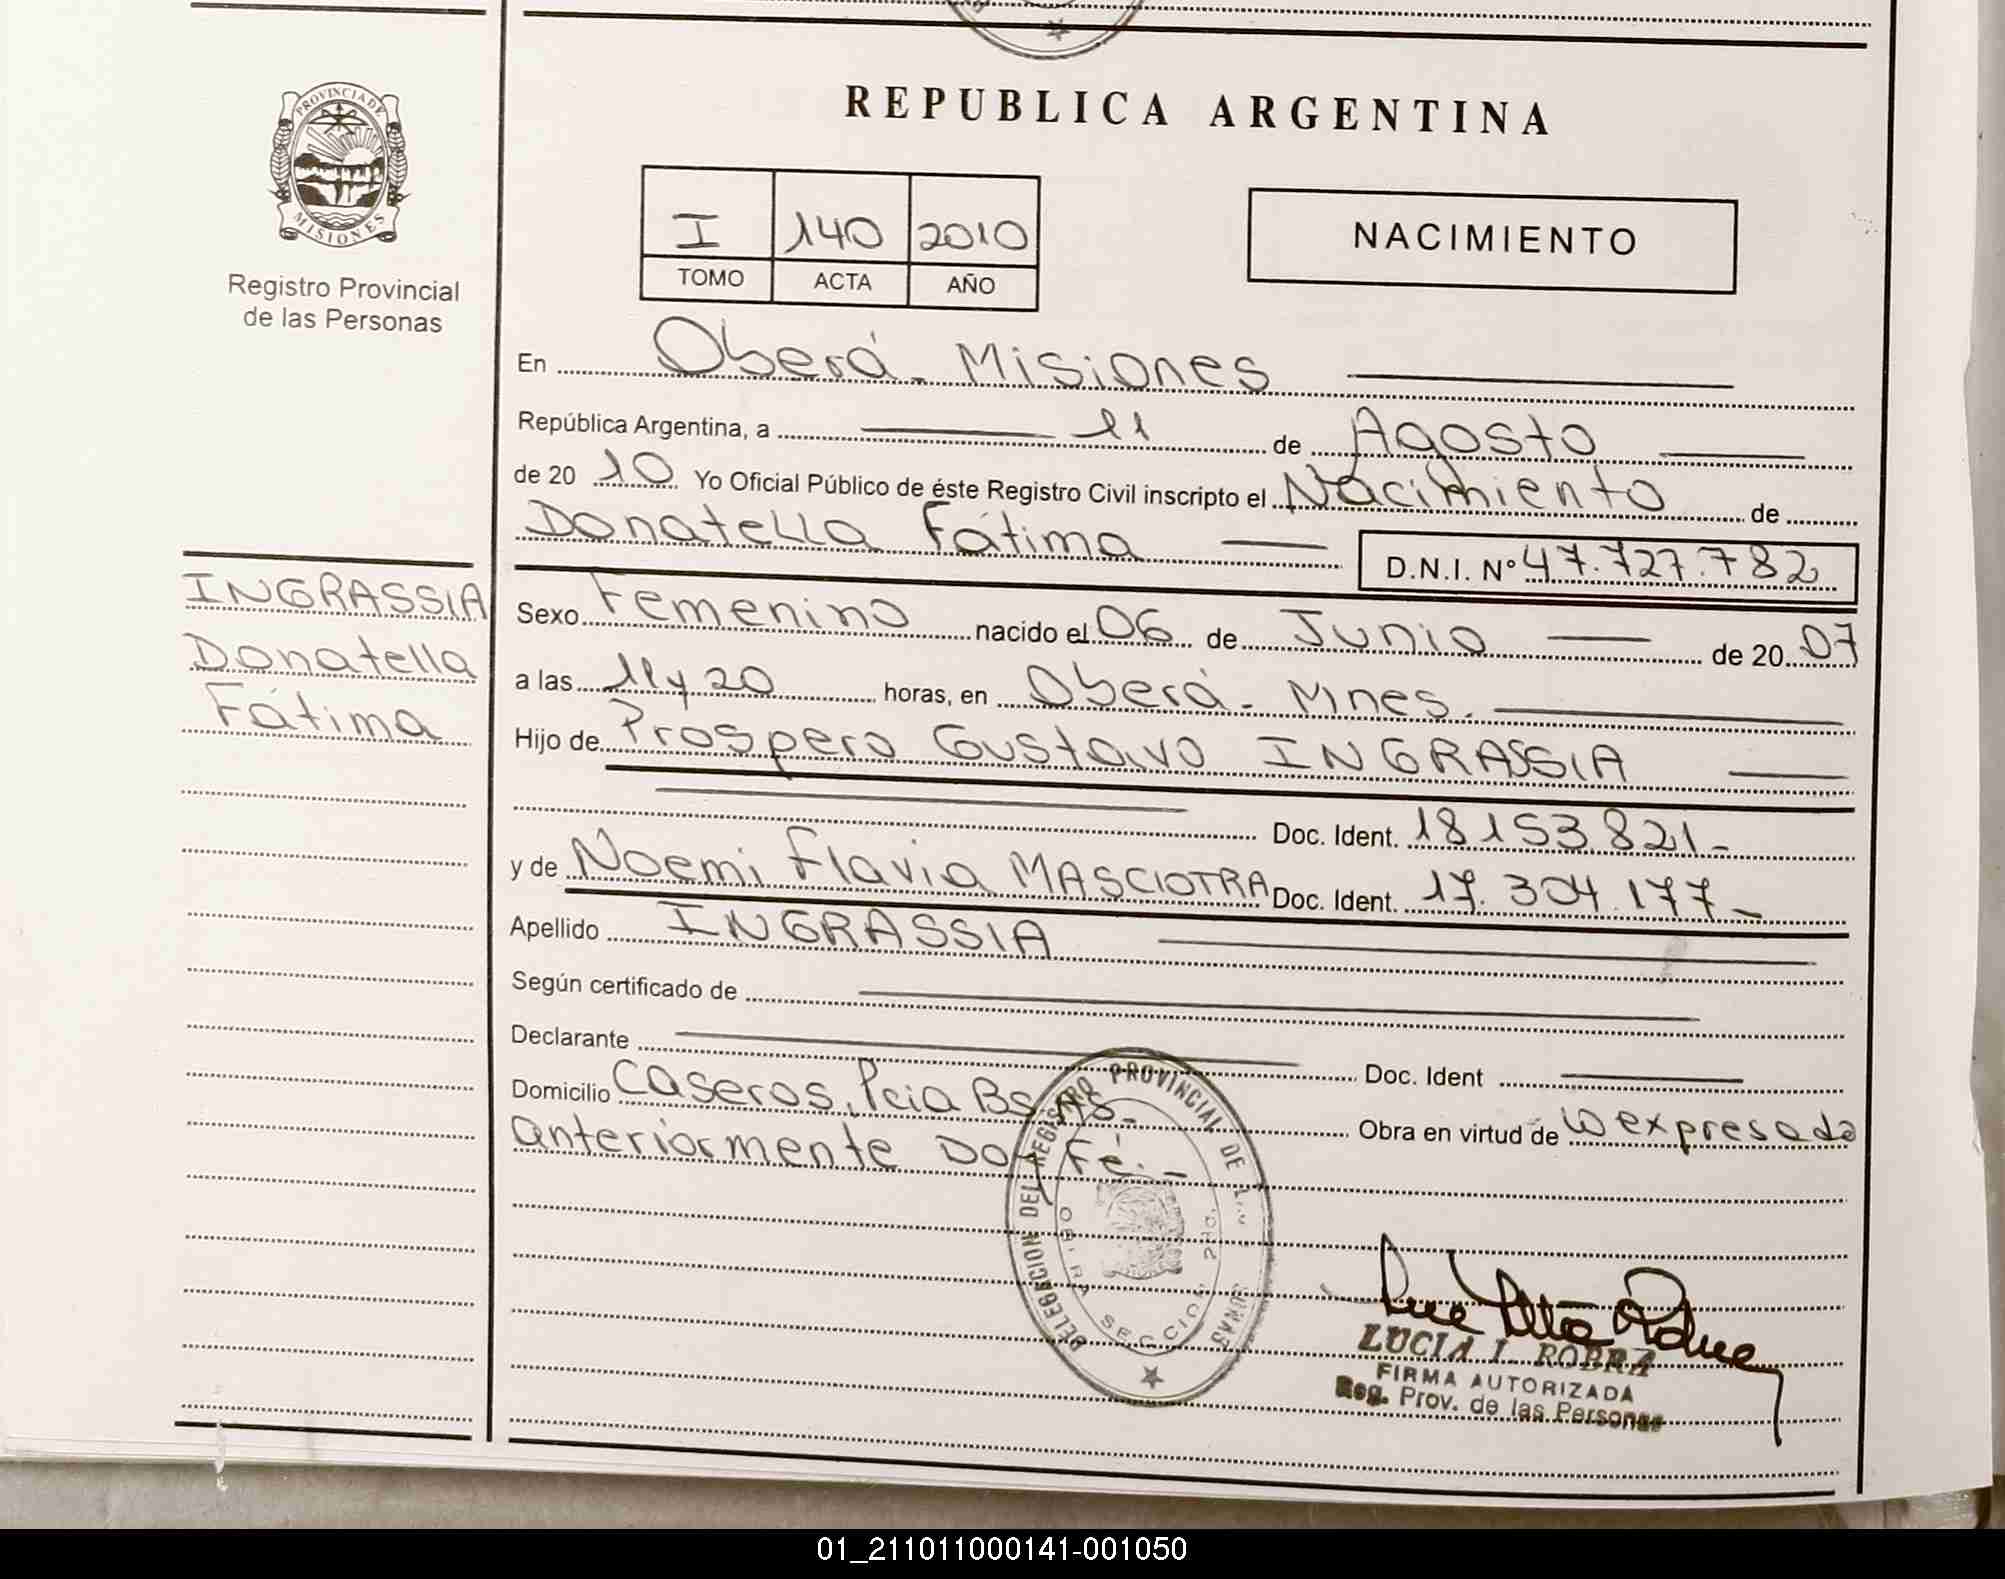 PROVINCIA DE
MISIONES
Registro Provincial
de las Personas
REPUBLICA ARGENTINA
I 140 2010
TOMO ACTA AÑO
NACIMIENTO
En Oberá - Misiones
República Argentina, a 11 de Agosto
de 20 10 Yo Oficial Público de éste Registro Civil inscripto el Nacimiento de
Donatella Fátima D.N.I. Nº 47.727.782
INGRASSIA
Donatella
Fátima
Sexo Femenino nacido el 06 de Junio de 20 07
a las 11 y 20 horas, en Oberá - Mnes.
Hijo de Prospero Gustavo INGRASSIA
Doc. Ident. 18153.821-
y de Noemi Flavia MASCIOTRA Doc. Ident. 17.304.177-
Apellido INGRASSIA
Según certificado de
Declarante Doc. Ident
Domicilio Caseros, Pcia Bs. As. - Obra en virtud de lo expresado
anteriormente Doy Fé. -
DELEGACION DEL REGISTRO PROVINCIAL DE
SECCION 2DA.
LUCIA I. ROBRA
FIRMA AUTORIZADA
Reg. Prov. de las Personas
01_211011000141-001050